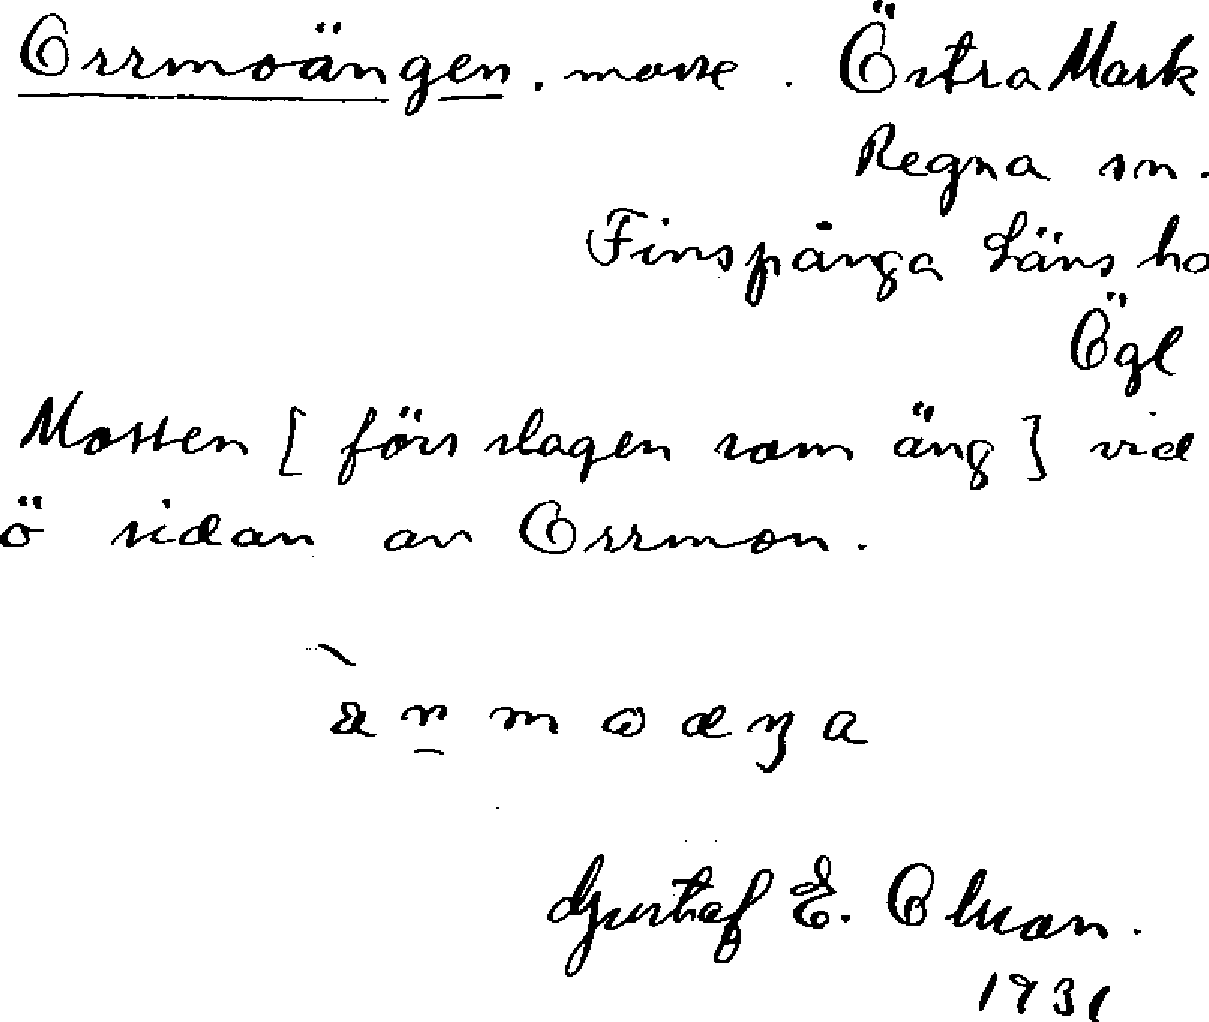 Orrmoängen. mosse. Östra Mark
Regna sn.
Finspånga Läns hd
Ögl
Mossen [förs slagen som äng] vid
ö sidan av Orrmon.
Gustaf E. Olsson.
1931